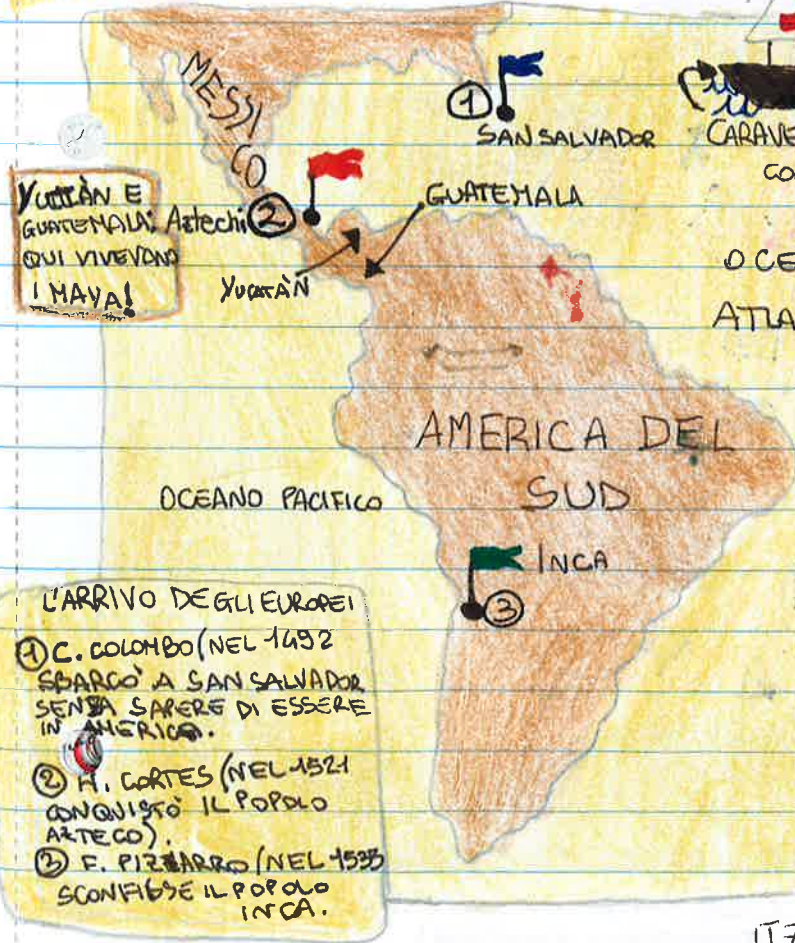 MESSICO
1
SAN SALVADOR
CARAVE
CO
YUCATÀN E
GUATEMALA:
QUI VIVEVANO
I MAYA!
Aztechi 2
GUATEMALA
YUCATÀN
OCE
ATLA
AMERICA DEL
SUD
OCEANO PACIFICO
INCA
3
L'ARRIVO DEGLI EUROPEI
1 C. COLOMBO (NEL 1492
SBARCÒ A SAN SALVADOR
SENZA SAPERE DI ESSERE
IN AMERICA.
2 H. CORTES (NEL 1521
CONQUISTÒ IL POPOLO
AZTECO).
3 F. PIZZARRO (NEL
SCONFISSE IL POPOLO
INCA.